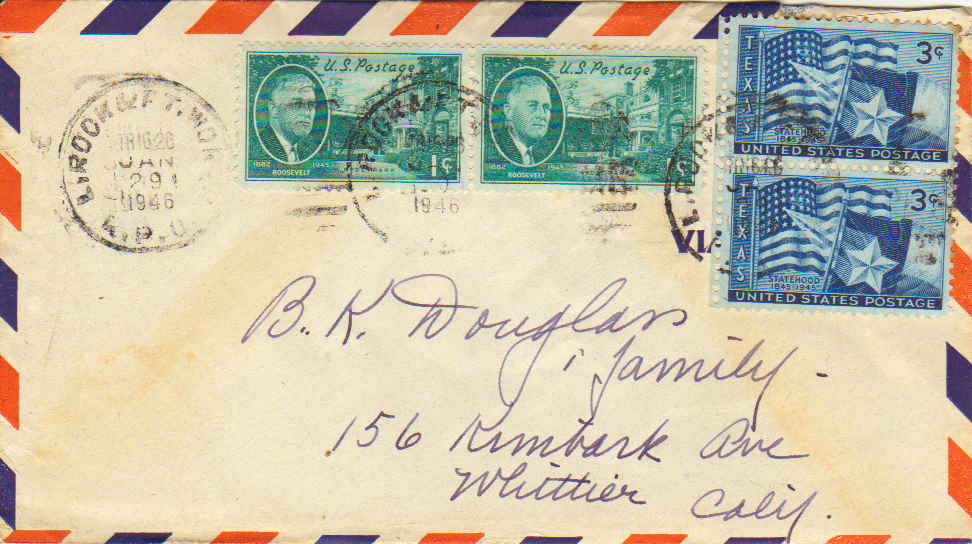 L. ROCK & FT. WO
TR 16.26
JAN
29
1946
R.P.O.
U.S. Postage
1882 1945
ROOSEVELT
1¢
U.S. Postage
1882 1945
ROOSEVELT
1946
TEXAS
3¢
STATEHOOD
UNITED STATES POSTAGE
TEXAS
3¢
STATEHOOD
1845·1945
UNITED STATES POSTAGE
VIA
B. K. Douglass
& family.
156 Kimbark Ave
Whittier Calif.